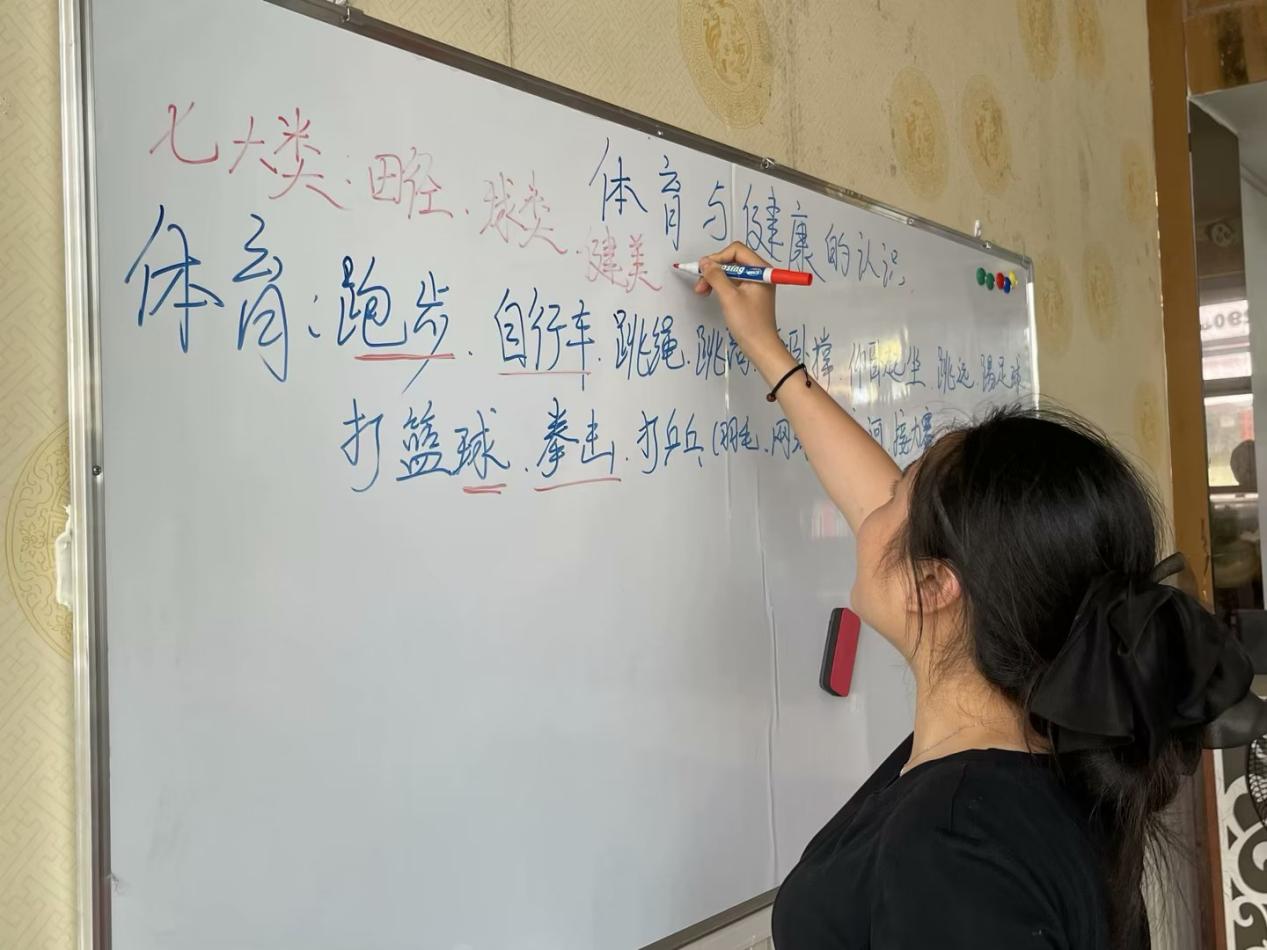 体育与健康的认识
七大类：田径、球类、健美
体育：跑步、自行车、跳绳、跳高、卧撑、仰卧起坐、跳远、踢足球
打篮球、拳击、打乒乓(羽毛、网 接力赛